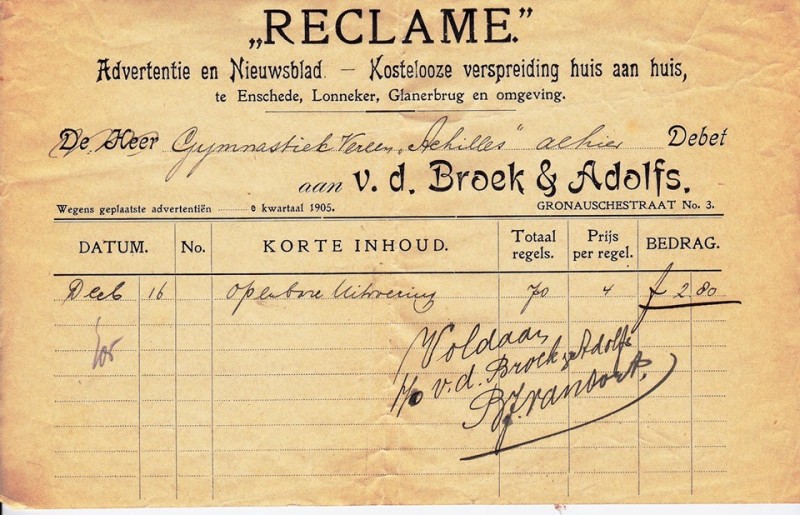 „RECLAME.”
Advertentie en Nieuwsblad. — Kostelooze verspreiding huis aan huis,
te Enschede, Lonneker, Glanerbrug en omgeving.
De Heer Gymnastiek Vereen. „Achilles” alhier Debet
aan v. d. Broek & Adolfs.
Wegens geplaatste advertentiën e kwartaal 1905. GRONAUSCHESTRAAT No. 3.
DATUM. No. KORTE INHOUD. Totaal regels. Prijs per regel. BEDRAG.
Decb 16 Openbare Uitvoering 70 4 f 2.80
Voldaan
p/o v. d. Broek & Adolfs